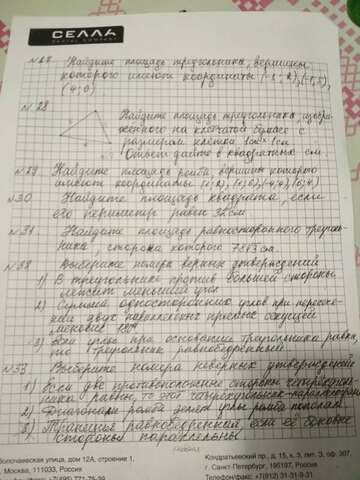 СЕЛЛЬ
DENTAL COMPANY
N27 Найдите площадь треугольника, вершины
которого имеют координаты
(4;0)
N28
Найдите площадь треугольника, изобра-
женного на клетчатой бумаге с
размером клетки 1см × 1см
Ответ дайте в квадратных см
N29 Найдите площадь ромба, вершины которого
имеют координаты
N30 Найдите площадь квадрата, если
его периметр равен 32 см
N31 Найдите площадь равностороннего треуголь-
ника, сторона которого
Выберите номера верных утверждений
1) В треугольнике против большей стороны
лежит меньший угол
2) односторонних углов при пересече-
нии двух параллельных прямых секущей
3) Если углы при основание треугольника равны,
то треугольник равнобедренный
N33 Выберите номера неверных утверждений
1) Если две противоположные стороны четыреуголь-
ника равны, то этот четырехугольник-параллелограмм
2) Диагонали ромба делят углы ромба пополам
3) Трапеция равнобедренная, если её боковые
стороны параллельны
Волочаевская улица, дом 12А, строение 1,
Москва, 111033, Россия
Кондратьевский пр., д. 15, к. 3, лит. Ж, оф. 307,
г. Санкт-Петербург, 195197, Россия
Телефоны: +7(812) 31-3-9-31